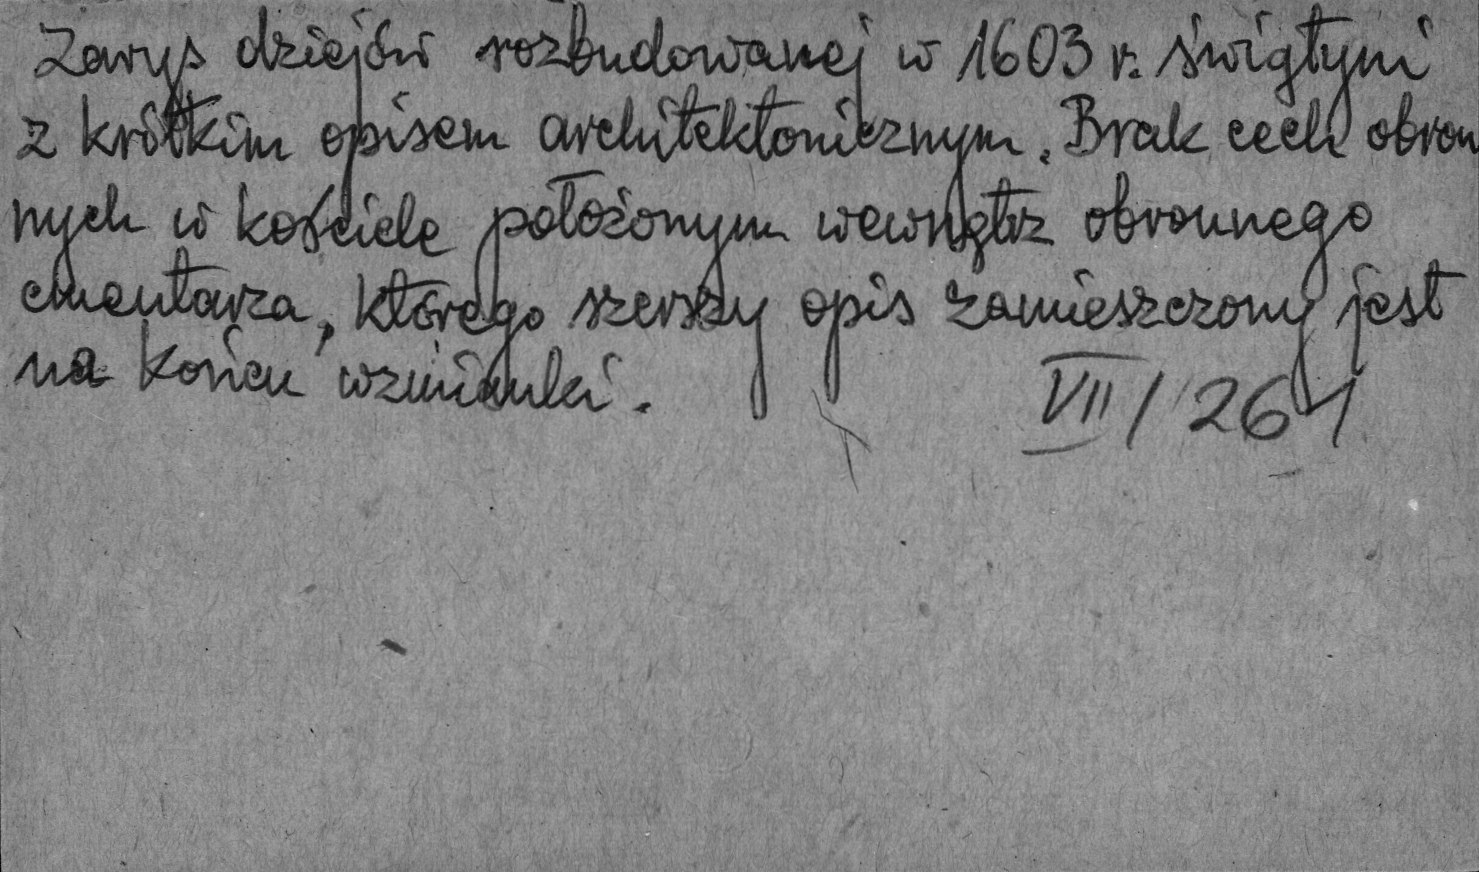 Zarys dziejów rozbudowanej w 1603 r. świątyni
z krótkim opisem architektonicznym. Brak cech obron
nych w kościele położonym wewnątrz obronnego
cmentarza, którego szerszy opis zamieszczony jest
na końcu wzmianki. VII/261